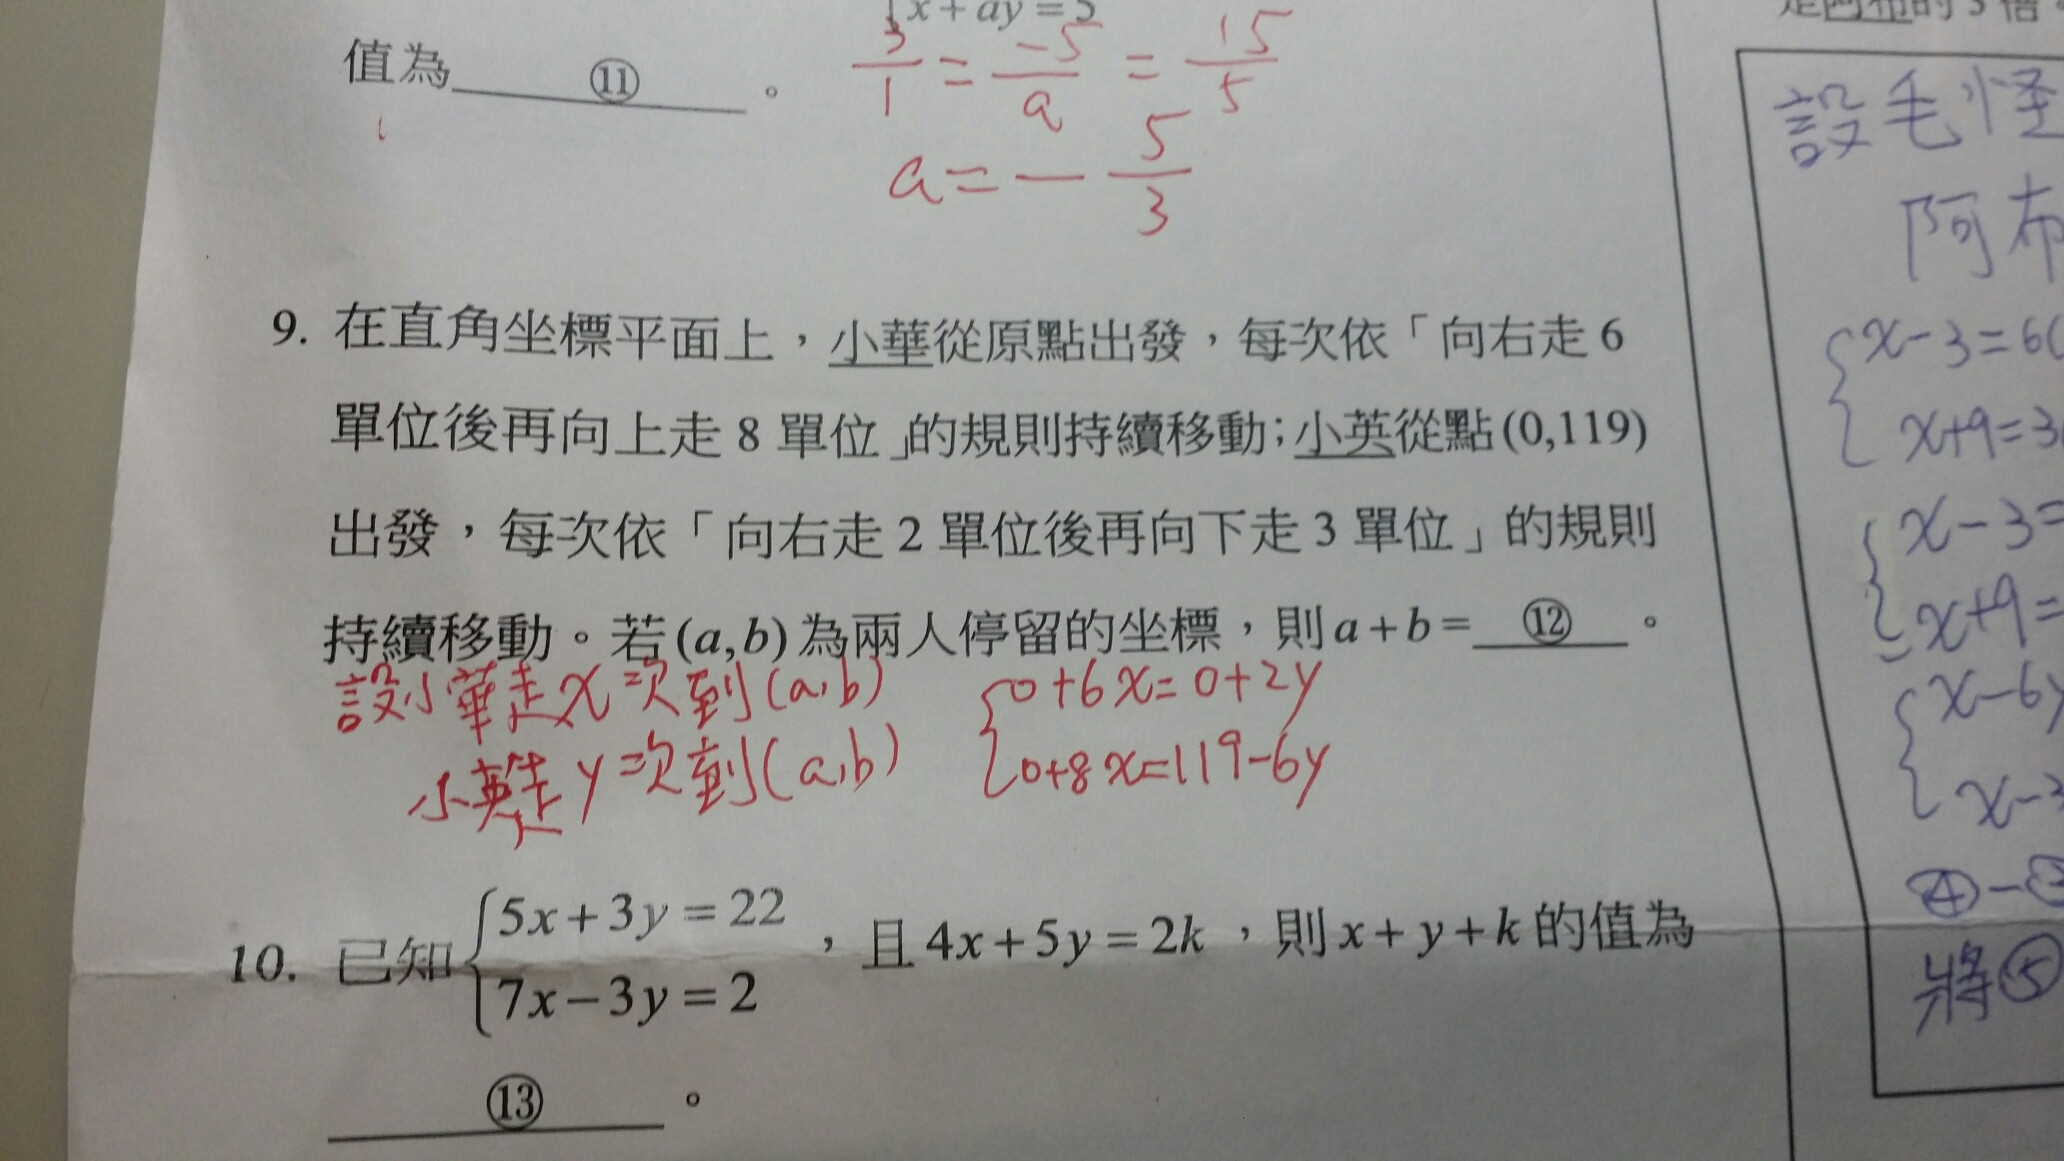 x+ay=5
值為 ⑪ 。
3/1 = -5/a = 15/5
a=-5/3
9. 在直角坐標平面上，小華從原點出發，每次依「向右走6
單位後再向上走8單位」的規則持續移動；小英從點(0,119)
出發，每次依「向右走2單位後再向下走3單位」的規則
持續移動。若(a,b)為兩人停留的坐標，則a+b= ⑫ 。
設小華走x次到(a,b)
小英走y次到(a,b)
0+6x=0+2y
0+8x=119-6y
10. 已知{5x+3y=22
7x-3y=2
，且4x+5y=2k，則x+y+k的值為
⑬ 。
是阿布的3倍。
設毛怪
阿布
x-3=6(
x+9=3
x-3=
x+9=
x-6y
x-3
④-
將⑤